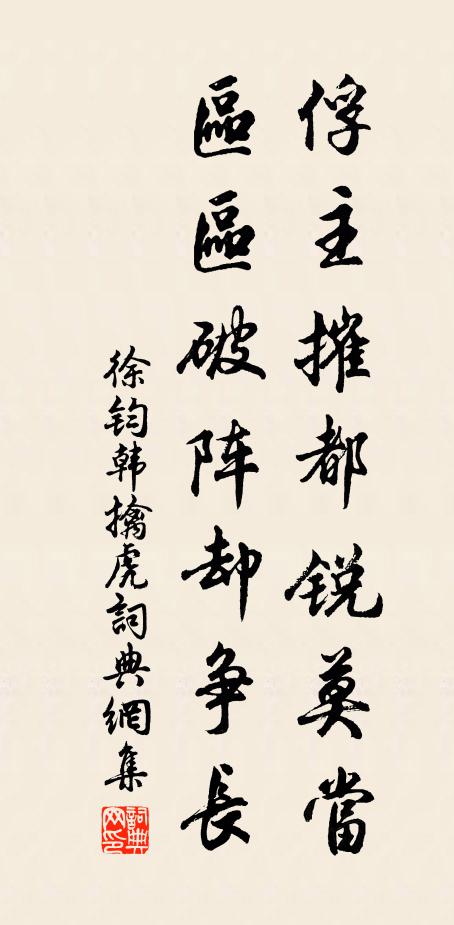 俘主摧都锐莫當
區區破阵却争長
徐钧韩擒虎詞典網集
詞典網印